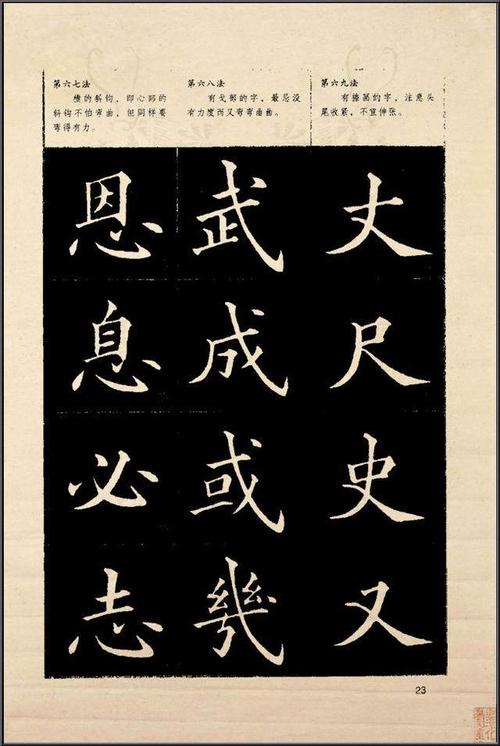 第六七法
横的斜钩，即心部的
斜钩不怕弯曲，但同样要
弯得有力。
第六八法
有戈部的字，最忌没
有力度而又弯弯曲曲。
第六九法
有捺画的字，注意头
尾收紧，不宜伸张。
丈尺史又
武成或幾
恩息必志
23